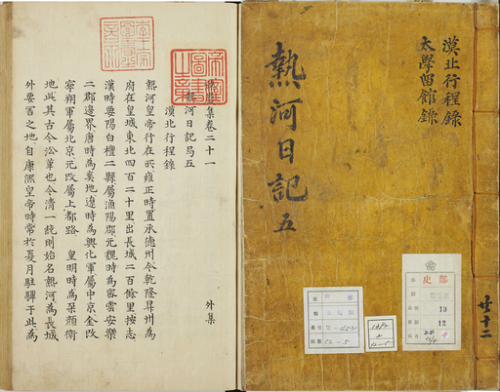 漠北行程錄
太學留館錄
熱河日記 五
史部
13
12
12-5
燕巖集卷二十一 外集
熱河日記 五
漠北行程錄
熱河皇帝行在所雍正時置承德州今乾隆昇州為
府在皇城東北四百二十里出長城二百餘里按志
漢時要陽白檀二縣屬漁陽郡元魏時為密雲安樂
二郡邊界唐時為奚地遼時為興化軍屬中京金改
寧朔軍屬北京元改屬上都路 皇明時為朶顏衛
地此其古今沿革也今清一統則始名熱河為長城
外要害之地自康熙皇帝時常於夏月駐驆于此為